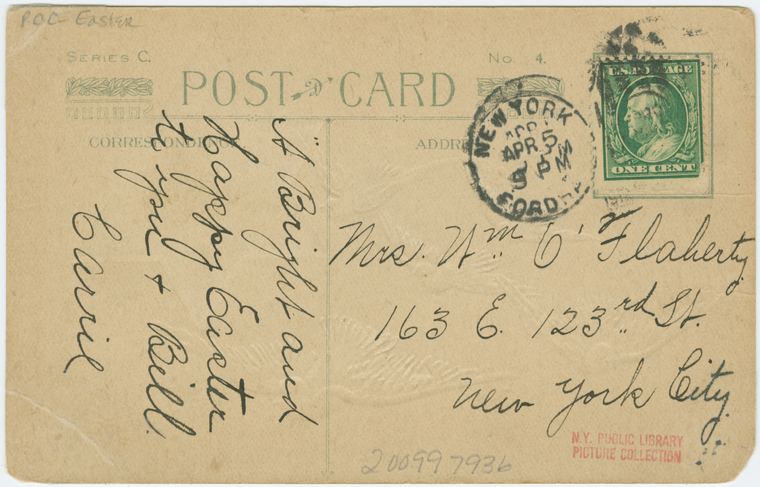 POC- Easter
SERIES C.
No. 4.
POST CARD
CORRESPONDENCE
"A Bright and
Happy Easter
to you + Bill.
Carril
NEW YORK
APR 5
PM
FORDH
U.S. POSTAGE
ONE CENT
Mrs. Wm O'Flaherty
163 E. 123rd St.
New York City
N.Y. PUBLIC LIBRARY
PICTURE COLLECTION
200997936